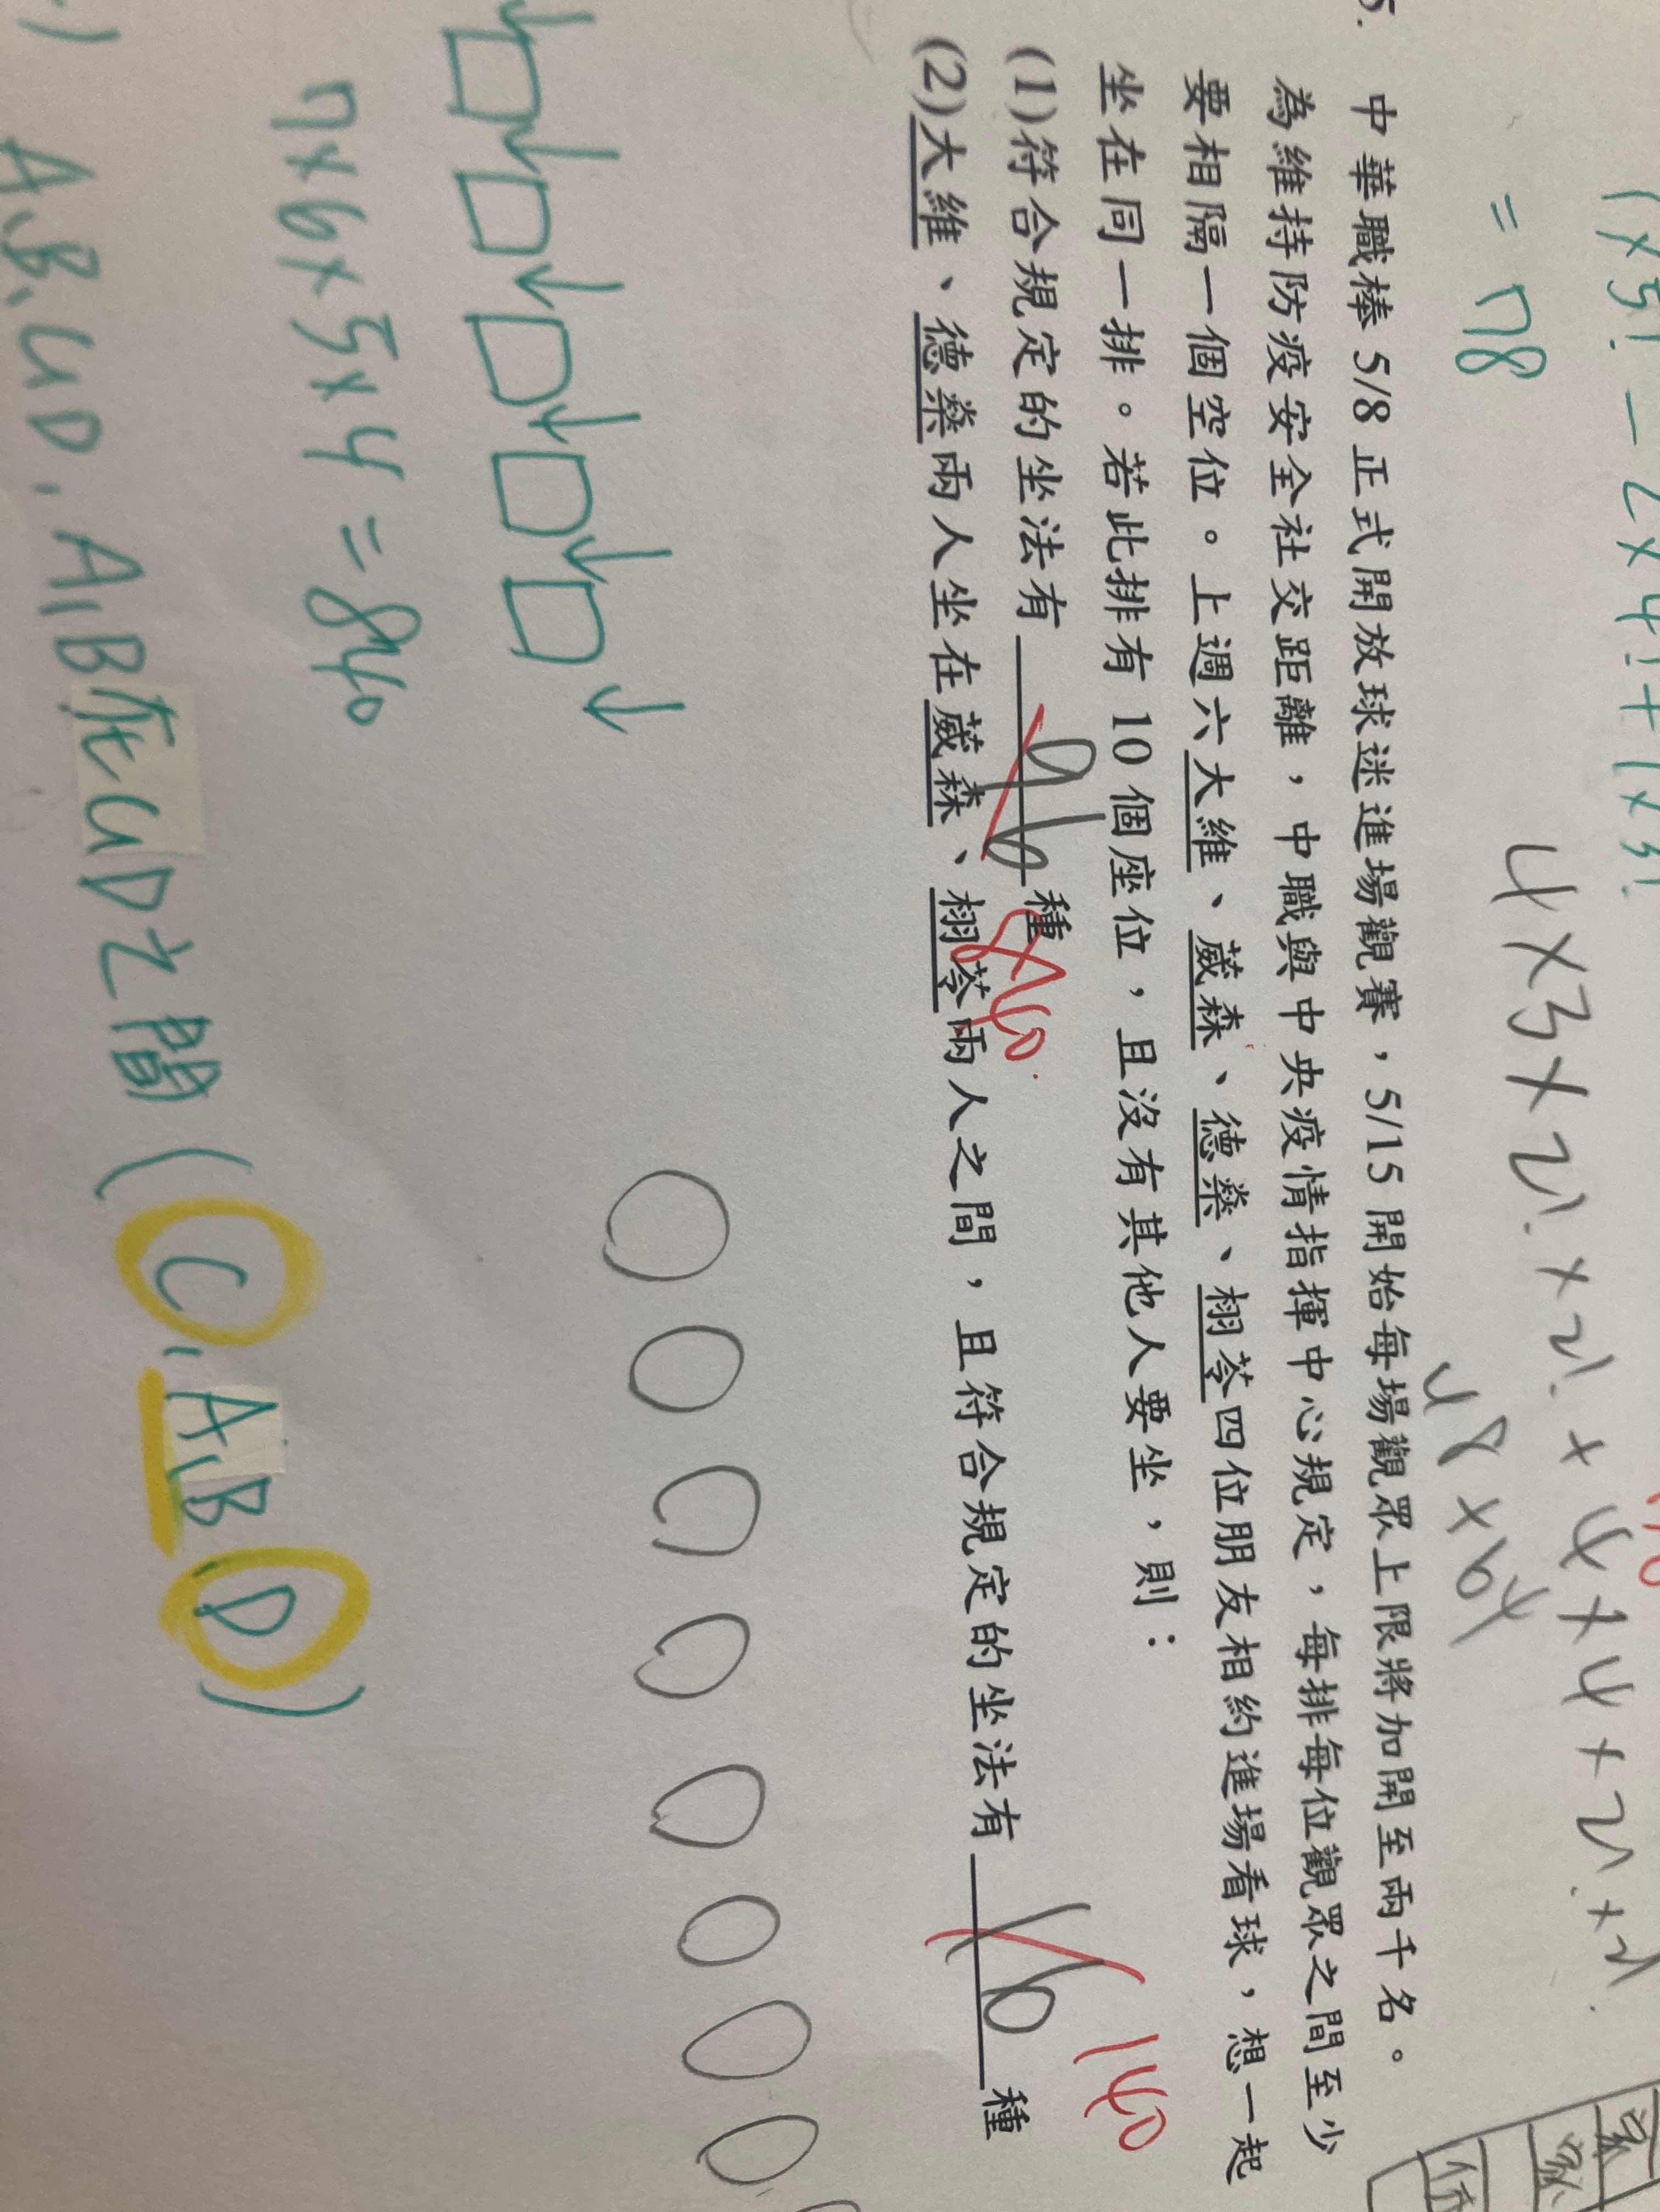 1×5! - 2×4! + 1×3!
= 78
4×3×2!×2! +4×4×2!×2!
5. 中華職棒 5/8 正式開放球迷進場觀賽，5/15 開始每場觀眾上限將加開至兩千名。
為維持防疫安全社交距離，中職與中央疫情指揮中心規定，每排每位觀眾之間至少
要相隔一個空位。上週六大維、葳森、德燊、栩苓四位朋友相約進場看球，想一起
坐在同一排。若此排有 10 個座位，且沒有其他人要坐，則：
(1)符合規定的坐法有 96 種 840
(2)大維、德燊兩人坐在葳森、栩苓兩人之間，且符合規定的坐法有 16 種 140
7×6×5×4 = 840
A,B,C,D, A,B在C,D之間 (C,A,B,D)